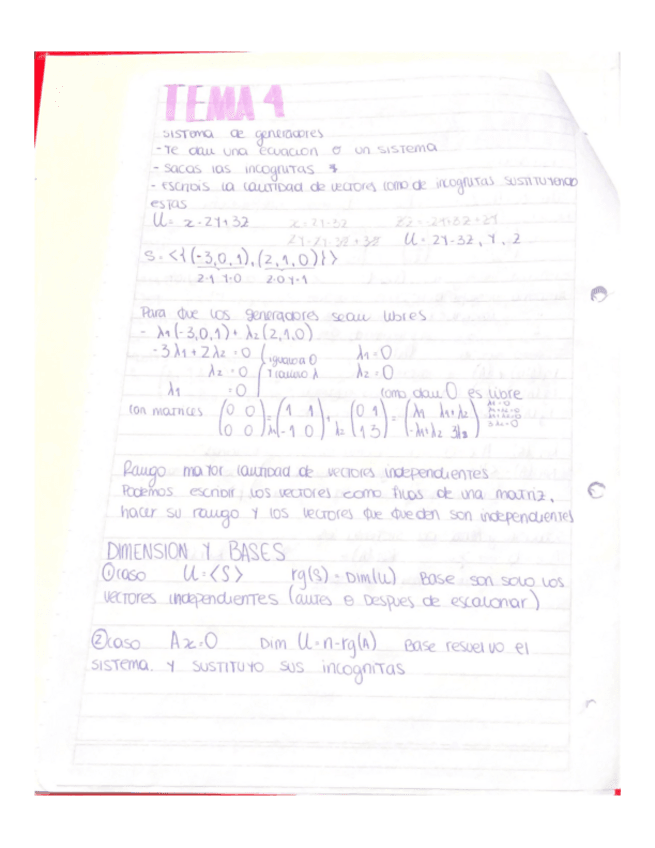 TEMA 4
SISTEMA de generadores
- Te dan una ecuacion o un sistema
- sacas las incognitas
- escribis la cantidad de vectores como de incognitas sustituyendo
estas
U = x - 2y + 3z
U = 2y - 3z, y, z
S = <{(-3,0,1),(2,1,0)}>
z=1 y=0 z=0 y=1
Para que los generadores sean libres
- λ1(-3,0,1) + λ2(2,1,0)
-3λ1 + 2λ2 = 0 igualo a 0 λ1 = 0
λ2 = 0 λ2 = 0
λ1 = 0 como dan 0 es libre
con matrices (0 0 / 0 0) = λ1 (1 1 / -1 0) + λ2 (0 1 / 1 3) = (λ1 λ1+λ2 / -λ1+λ2 3λ2)
Rango mayor cantidad de vectores independientes
Podemos escribir los vectores como filas de una matriz,
hacer su rango y los vectores que queden son independientes
DIMENSION Y BASES
① caso U = <S> rg(S) = Dim(U) Base son solo los
vectores independientes (antes o despues de escalonar)
② caso Ax = 0 Dim U = n - rg(A) Base resuelvo el
sistema y sustituyo sus incognitas